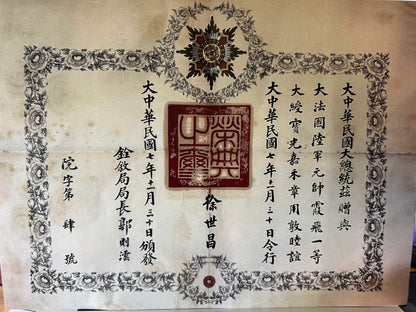 大中華民國大總統茲贈與
大法國陸軍元帥霞飛一等
大綬寶光嘉禾章用敦睦誼
大中華民國七年十一月三十日令行
榮典之璽
徐世昌
大中華民國七年十一月三十日頒發
銓敘局局長郭則澐
字第肆號